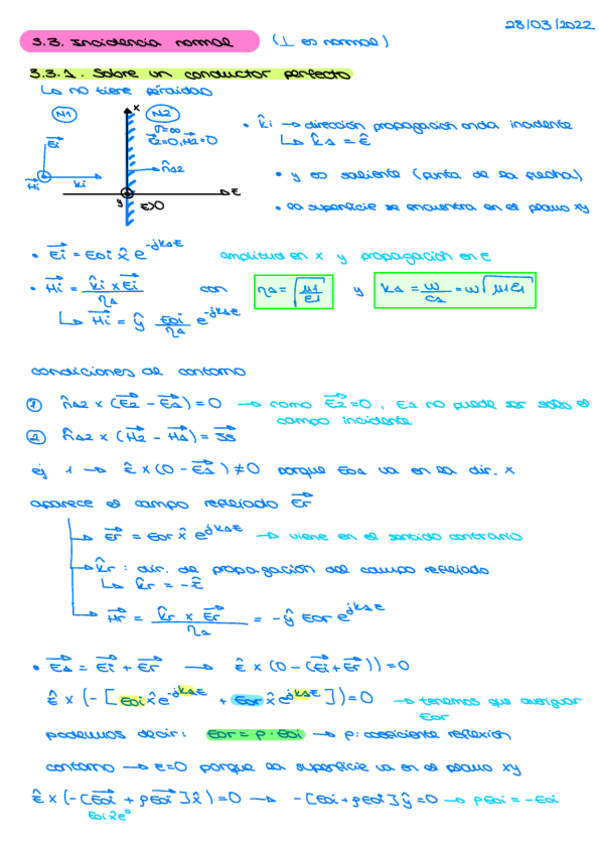 28/03/2022
3.3. Incidencia normal (⊥ es normal)
3.3.1. Sobre un conductor perfecto
↳ no tiene pérdidas
N1 N2 x
σ=∞
E2=0, H2=0
Ei
n̂12
Hi ki y z>0 z
• k̂i → dirección propagación onda incidente
↳ k̂1 = ẑ
• y es saliente (punta de la flecha)
• la superficie se encuentra en el plano xy
• Ei = Eoi x̂ e^-jk1z amplitud en x y propagación en z
• Hi = k̂i x Ei / η1 con η1 = √(μ1/ε1) y k1 = ω/c1 = ω√(με1)
↳ Hi = ŷ Eoi/η1 e^-jk1z
condiciones de contorno
① n̂12 x (E2 - E1) = 0 → como E2=0, E1 no puede ser solo el
campo incidente
② n̂12 x (H2 - H1) = Js
ej 1 → ẑ x (0 - E1) ≠ 0 porque Eo1 va en la dir. x
aparece el campo reflejado Er
→ Er = Eor x̂ e^jk1z → viene en el sentido contrario
→ k̂r: dir. de propagación del campo reflejado
↳ k̂r = -ẑ
→ Hr = k̂r x Er / η1 = -ŷ Eor e^jk1z
• E1 = Ei + Er → ẑ x (0 - (Ei + Er)) = 0
ẑ x (- [Eoi x̂ e^-jk1z + Eor x̂ e^jk1z]) = 0 → tenemos que averiguar
Eor
podemos decir: Eor = ρ · Eoi → ρ: coeficiente reflexión
contorno → z=0 porque la superficie va en el plano xy
ẑ x (-[Eoi + ρEoi] x̂) = 0 → -[Eoi + ρEoi] ŷ = 0 → ρEoi = -Eoi
Eoi x̂ e^0